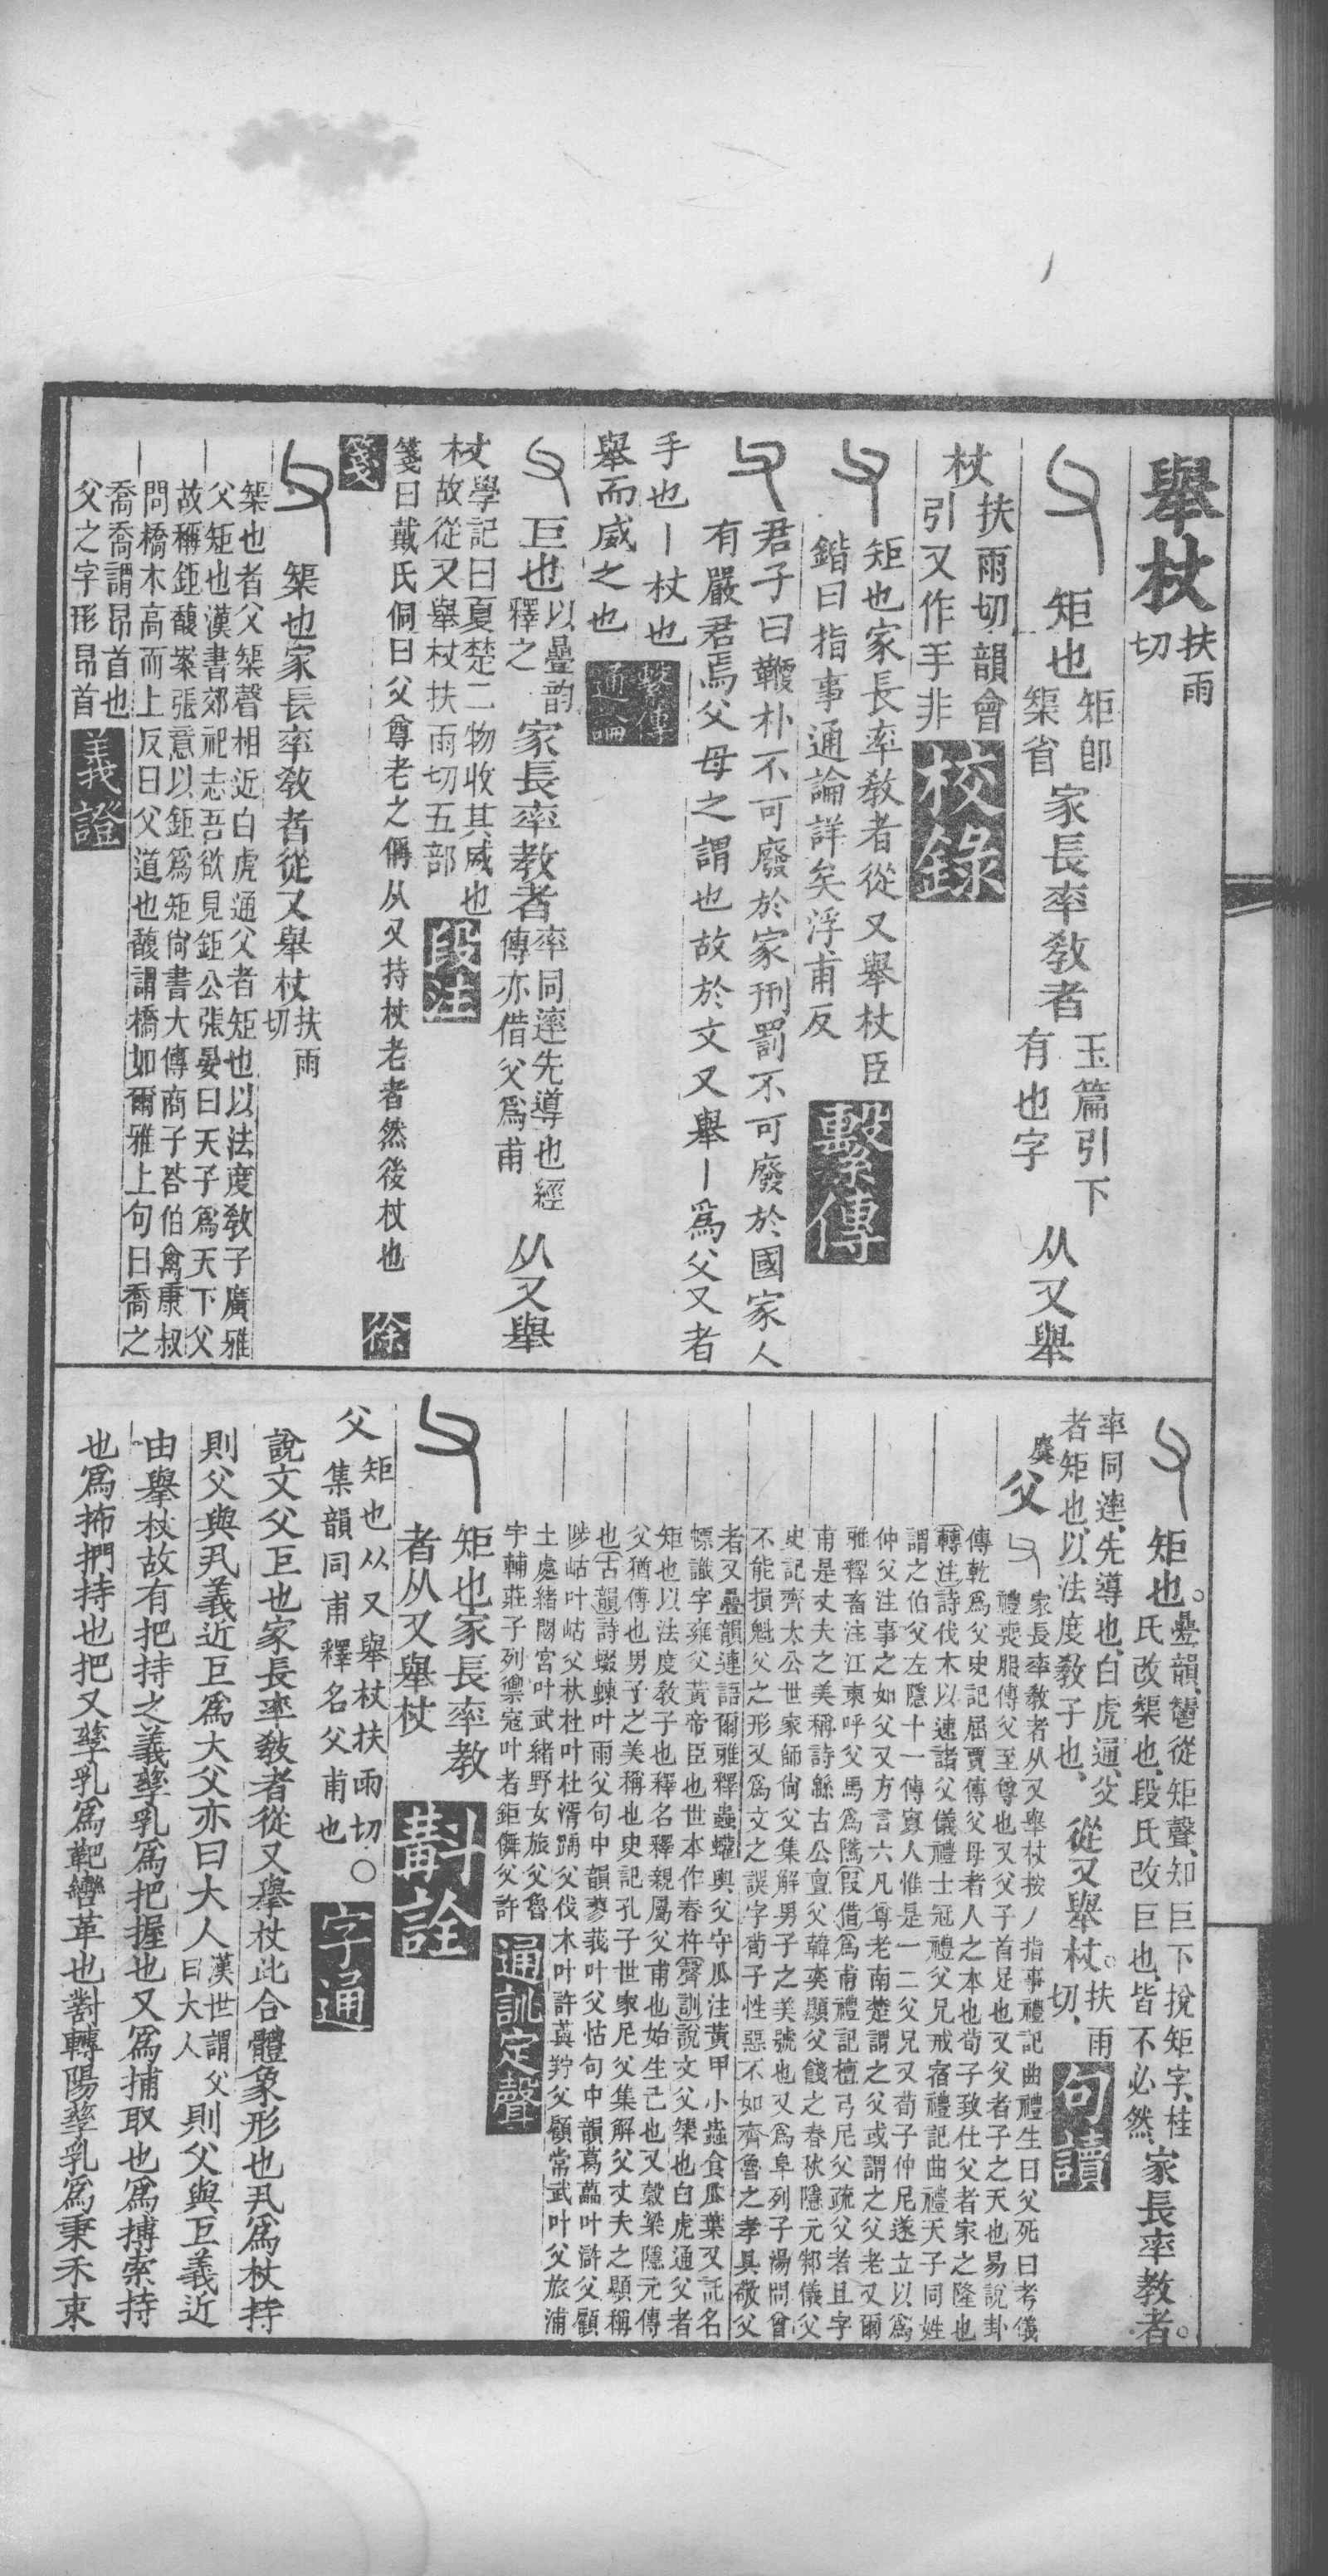 舉杖扶雨
切
矩也矩卽
榘省家長率敎者玉篇引下
有也字从又舉
杖扶雨切韻會
引又作手非校錄
矩也家長率敎者從又舉杖臣
鍇曰指事通論詳矣浮甫反繫傳
君子曰鞭朴不可廢於家刑罰不可廢於國家人
有嚴君焉父母之謂也故於文又舉丨爲父又者
手也丨杖也繫傳
舉而威之也通論
巨也以疊韵
釋之家長率教者率同䢦先導也經
傳亦借父爲甫从又舉
杖學記曰夏楚二物收其威也
故從又舉杖扶雨切五部段注
箋曰戴氏侗曰父尊老之偁从又持杖老者然後杖也徐
箋
榘也家長率敎者從又舉杖扶雨
切
榘也者父榘聲相近白虎通父者矩也以法度敎子廣雅
父矩也漢書郊祀志吾欲見鉅公張晏曰天子爲天下父
故稱鉅馥案張意以鉅爲矩尙書大傳商子荅伯禽康叔
問橋木高而上反曰父道也馥謂橋如爾雅上句曰喬之
喬喬謂昂首也
父之字形昂首義證
矩也。疊韻、鬯從矩聲、知巨下挩矩字、桂
氏改榘也、段氏改巨也、皆不必然、家長率教者。
率同䢦、先導也、白虎通、父
者矩也、以法度敎子也、從又舉杖。扶雨
切、句讀
父家長率敎者从又舉杖按丿指事禮記曲禮生曰父死曰考儀
禮喪服傳父至尊也又父子首足也又父者子之天也易說卦
傳乾爲父史記屈賈傳父母者人之本也荀子致仕父者家之隆也
轉注詩伐木以速諸父儀禮士冠禮父兄戒宿禮記曲禮天子同姓
謂之伯父左隱十一傳寡人惟是一二父兄又荀子仲尼遂立以爲
仲父注事之如父又方言六凡尊老南楚謂之父或謂之父老又爾
雅釋畜注江東呼父馬爲騭叚借爲甫禮記檀弓尼父疏父者且字
甫是丈夫之美稱詩緜古公亶父韓奕顯父餞之春秋隱元邾儀父
史記齊太公世家師尙父集解男子之美號也又爲阜列子湯問曾
不能損魁父之形又爲文之誤字荀子性惡不如齊魯之孝具敬父
者又疊韻連語爾雅釋蟲蠸輿父守瓜注黃甲小蟲食瓜葉又託名
幖識字雍父黃帝臣也世本作舂杵聲訓說文父榘也白虎通父者
矩也以法度敎子也釋名釋親屬父甫也始生己也又穀梁隱元傳
父猶傅也男子之美稱也史記孔子世家尼父集解父丈夫之顯稱
也古韻詩蝃蝀叶雨父句中韻蓼莪叶父怙句中韻葛藟叶滸父顧
陟岵叶岵父杕杜叶杜湑踽父伐木叶許藇羜父顧常武叶父旅浦
土處緒閟宮叶武緒野女旅父魯
宇輔莊子列禦寇叶者鉅僂父許通訓定聲
矩也家長率教
者从又舉杖斠詮
父矩也从又舉杖扶雨切○
集韻同甫釋名父甫也字通
說文父巨也家長率敎者從又擧杖此合體象形也𠃨爲杖持
則父與𠃨義近巨爲大父亦曰大人漢世謂父
曰大人則父與巨義近
由擧杖故有把持之義孳乳爲把握也又爲捕取也爲搏索持
也爲抪捫持也把又孳乳爲靶轡革也對轉陽孳乳爲秉禾束